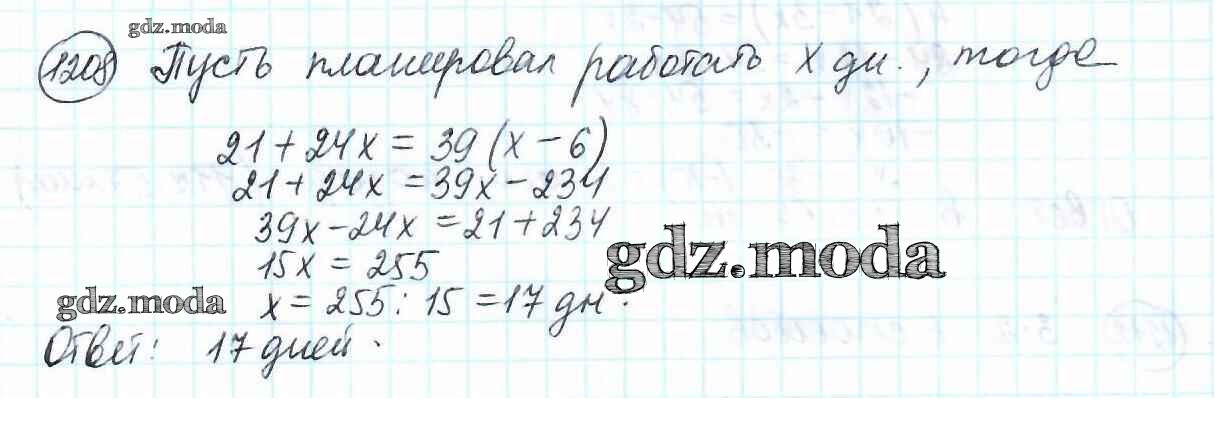 gdz.moda
1208 Пусть планировал работать x дн., тогда
21 + 24x = 39 (x - 6)
21 + 24x = 39x - 234
39x - 24x = 21 + 234
gdz.moda
15x = 255
gdz.moda
x = 255 : 15 = 17 дн.
Ответ: 17 дней.